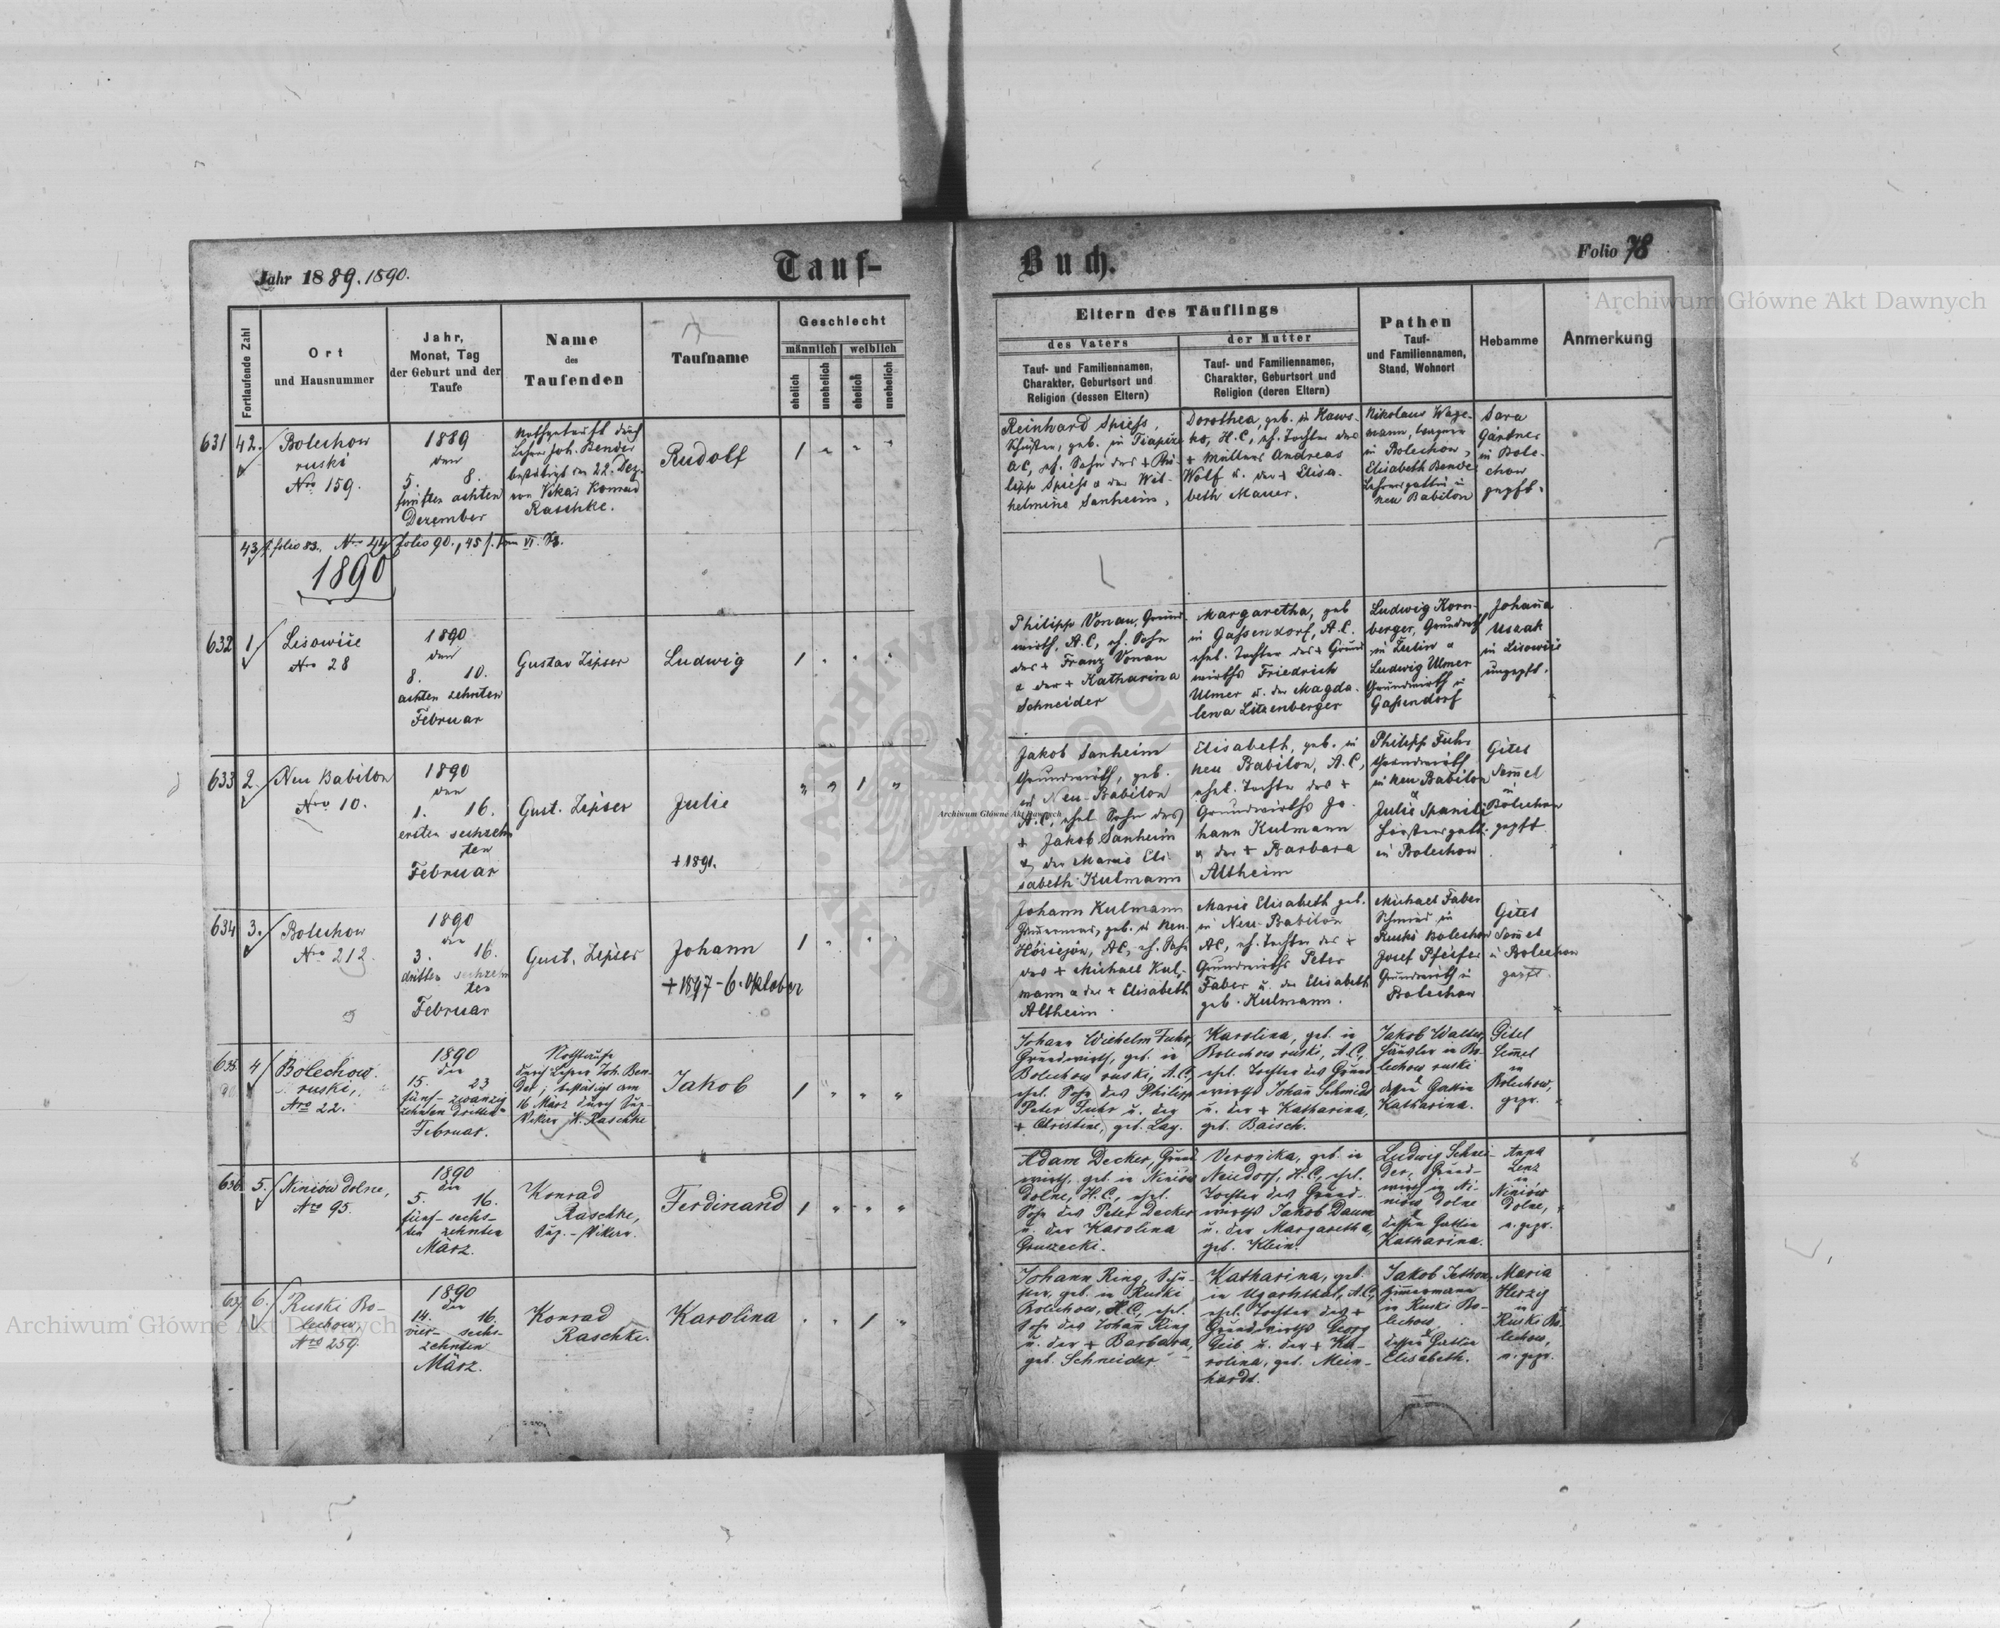 Jahr 1889. 1890.
Tauf-
Buch.
Folio 78
Fortlaufende Zahl
Ort
und Hausnummer
Jahr,
Monat, Tag
der Geburt und der
Taufe
Name
des
Taufenden
Taufname
Geschlecht
männlich
weiblich
ehelich
unehelich
ehelich
unehelich
Eltern des Täuflings
des Vaters
Tauf- und Familiennamen,
Charakter, Geburtsort und
Religion (dessen Eltern)
der Mutter
Tauf- und Familiennamen,
Charakter, Geburtsort und
Religion (deren Eltern)
Pathen
Tauf-
und Familiennamen,
Stand, Wohnort
Hebamme
Anmerkung
631
42.
Bolechow
ruski
Nro 159.
1889
den
5. 8.
fünften achten
Dezember
Nothgetauft durch
Lehrer Joh. Bender
bestätigt am 22. Dez.
von Vikar Konrad
Raschke.
Rudolf
1
Reinhard Spiess,
AC, eh. Sohn des + Phi-
lipp Spiess u der Wil-
helmine Sanheim,
Dorothea, geb. in
ko, H.C, eh. Tochter des
+ Müllers Andreas
Wolf u. der + Elisa-
beth Mauer.
Nikolaus Wage-
mann,
in Bolechow,
Elisabeth Bender
Lehrersgattin in
Neu Babilon
Sara
Gärtner
in Bole-
chow
gepft.
43 f. folio 83. Nro 44 folio 90., 45 f.
1890
632
1
Lisowice
Nro 28
1890
den
8. 10.
achten zehnten
Februar
Gustav Zipser
Ludwig
1
Philipp Vonau, Grund-
wirth, A.C, eh. Sohn
des + Franz Vonau
u der + Katharina
Schneider
Margaretha, geb
in Gassendorf, A.C.
ehel. Tochter des + Grund
wirths Friedrich
Ulmer u. der Magda-
lena Litzenberger
Ludwig Korn-
berger, Grundwth
in
Ludwig Ulmer
Grundwirth in
Gassendorf
Johanna
in Lisowice
ungepft.
633
2.
Neu Babilon
Nro 10.
1890
den
1. 16.
ersten sechzehn
ten
Februar
Gust. Zipser
Julie
+ 1891.
1
Jakob Sanheim
Grundwirth, geb.
in Neu-Babilon
A.C, ehel Sohn des
+ Jakob Sanheim
u der Marie Eli-
sabeth Kulmann
Elisabeth, geb. in
Neu Babilon, A.C,
ehel. Tochter des +
Grundwirths Jo-
hann Kulmann
u der + Barbara
Altheim
Philipp Fuhr
Grundwirth
in Neu-Babilon
Julie
in Bolechow
Gitel
Semmel
in
Bolechow
gepft.
634
3.
Bolechow
Nro 212.
1890
den
3. 16.
dritten sechzehn
ten
Februar
Gust. Zipser
Johann
+ 1897 - 6. Oktober
1
Johann Kulmann
des + Michael Kul-
mann u der + Elisabeth
Altheim.
Marie Elisabeth geb.
in Neu-Babilon
AC, eh. Tochter des +
Grundwirths Peter
Faber u. der Elisabeth
geb. Kulmann.
Michael Faber
Schmied in
Ruski Bolechow
Josef Pfeifer
Grundwirth in
Bolechow
Gitel
Semmel
in Bolechow
gepft.
635
4
Bolechow
ruski,
Nro 22.
1890
den
15. 23
fünf- zwanzig
zehnten dritten
Februar.
Nothtaufe
durch Lehrer Joh. Ben-
der, bestätigt am
16 März durch Sup-
Vikar K. Raschke
Jakob
1
Johann Wilhelm Fuhr,
Grundwirth, geb. in
Bolechow ruski, A.C,
ehel. Sohn des Philipp
Peter Fuhr u. der
+ Christine, geb. Lay.
Karolina, geb. in
Bolechow ruski, A.C,
ehel. Tochter des Grund
wirths Johann Schmidt
u. der + Katharina,
geb. Baisch.
Jakob Walter,
Häusler in Bo-
lechow ruski
u
dessen Gattin
Katharina.
Gitel
Semmel
in
Bolechow,
gepr.
636
5.
Niniów dolne,
Nro 95.
1890
den
5. 16.
fünf- sechs-
ten zehnten
März.
Konrad
Raschke,
Sup.-Vikar.
Ferdinand
1
Adam Decker, Grund
wirth, geb. in Niniów
dolne, H.C., ehel.
Sohn des Peter Decker
u. der Karolina
Gruszecki.
Veronika, geb. in
Neudorf, H.C., ehel.
Tochter des Grund-
wirths Jakob Daum
u. der Margaretha,
geb. Klein.
Ludwig Schnei-
der, Grund-
wirth in Ni-
niów dolne
u
dessen Gattin
Katharina.
Anna
Lenz
in
Niniów
dolne,
n. gepr.
637
6.
Ruski Bo-
lechow,
Nro 259.
1890
den
14. 16.
vier- sechs-
zehnten
März.
Konrad
Raschke.
Karolina
1
Johann Ring, Schu-
ster, geb. in Ruski
Bolechow, H.C., ehel.
Sohn des Johann Ring
u. der + Barbara,
geb. Schneider
Katharina, geb.
in Ugartsthal, A.C,
ehel. Tochter des +
Grundwirths Georg
Geib u. der + Ka-
rolina, geb. Mein-
hardt.
Jakob
Zimmermann
in Ruski Bo-
lechow,
u
dessen Gattin
Elisabeth.
Maria
Herzig
in
Ruski Bo-
lechow,
n. gepr.
Archiwum Główne Akt Dawnych
Archiwum Główne Akt Dawnych
Archiwum Główne Akt Dawnych